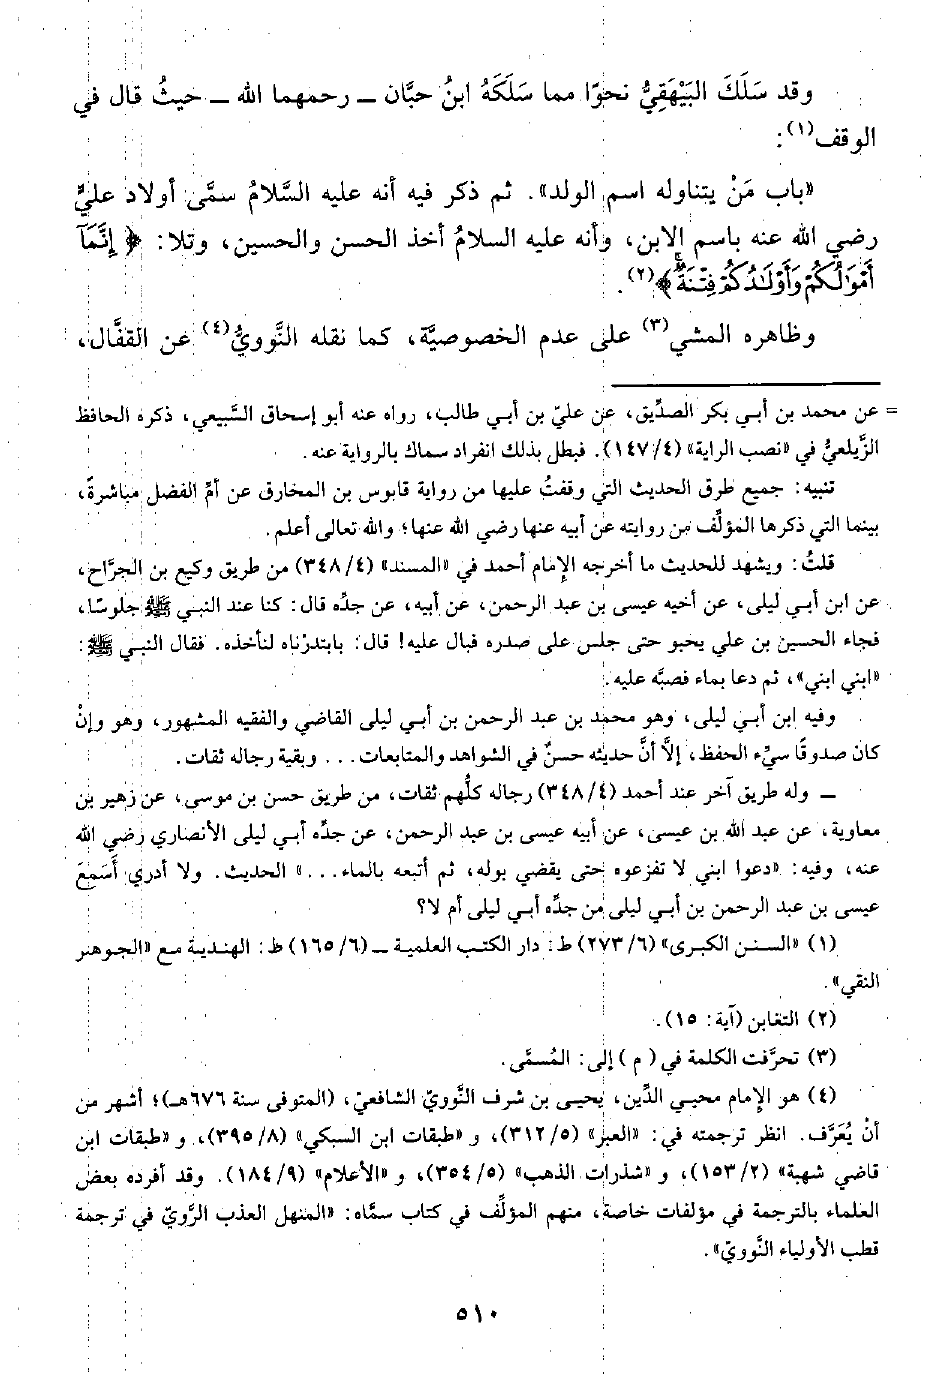 وقد سَلَكَ البَيْهَقِيُّ نحوًا مما سَلَكَهُ ابنُ حبَّان ــ رحمهما الله ــ حيثُ قال في
الوقف(١):
«باب مَنْ يتناوله اسم الولد». ثم ذكر فيه أنه عليه السَّلامُ سمَّى أولاد عليٍّ
رضي الله عنه باسم الابن، وأنه عليه السلامُ أخذ الحسن والحسين، وتلا: ﴿إِنَّمَآ
أَمْوَٰلُكُمْ وَأَوْلَٰدُكُمْ فِتْنَةٌ﴾(٢).
وظاهره المشي(٣) على عدم الخصوصيَّة، كما نقله النَّوويُّ(٤) عن القفَّال،
= عن محمد بن أبي بكر الصدِّيق، عن عليّ بن أبي طالب، رواه عنه أبو إسحاق السَّبيعي، ذكره الحافظ
الزَّيلعيُّ في «نصب الراية» (١٤٧/٤). فبطل بذلك انفراد سماك بالرواية عنه.
تنبيه: جميع طرق الحديث التي وقفتُ عليها من رواية قابوس بن المخارق عن أمِّ الفضل مباشرةً،
بينما التي ذكرها المؤلِّف من روايته عن أبيه عنها رضي الله عنها؛ والله تعالى أعلم.
قلتُ: ويشهد للحديث ما أخرجه الإمام أحمد في «المسند» (٣٤٨/٤) من طريق وكيع بن الجرَّاح،
عن ابن أبي ليلى، عن أخيه عيسى بن عبد الرحمن، عن أبيه، عن جدِّه قال: كنا عند النبي ﷺ جلوسًا،
فجاء الحسين بن علي يحبو حتى جلس على صدره فبال عليه! قال: بابتدرْناه لنأخذه. فقال النبي ﷺ:
«ابني ابني»، ثم دعا بماء فصبَّه عليه.
وفيه ابن أبي ليلى، وهو محمد بن عبد الرحمن بن أبي ليلى القاضي والفقيه المشهور، وهو وإنْ
كان صدوقًا سيِّء الحفظ، إلَّا أنَّ حديثه حسنٌ في الشواهد والمتابعات... وبقية رجاله ثقات.
ــ وله طريق آخر عند أحمد (٣٤٨/٤) رجاله كلُّهم ثقات، من طريق حسن بن موسى، عن زهير بن
معاوية، عن عبد الله بن عيسى، عن أبيه عيسى بن عبد الرحمن، عن جدِّه أبي ليلى الأنصاري رضي الله
عنه، وفيه: «دعوا ابني لا تفزعوه حتى يقضي بوله، ثم أتبعه بالماء...» الحديث. ولا أدري أَسَمِعَ
عيسى بن عبد الرحمن بن أبي ليلى من جدِّه أبي ليلى أم لا؟
(١) «السنن الكبرى» (٢٧٣/٦) ط: دار الكتب العلمية ــ (١٦٥/٦) ط: الهندية مع «الجوهر
النقي».
(٢) التغابن (آية: ١٥).
(٣) تحرَّفت الكلمة في ( م ) إلى: المُسمَّى.
(٤) هو الإمام محيي الدِّين، يحيى بن شرف النَّوويّ الشافعيّ، (المتوفى سنة ٦٧٦هـ)؛ أشهر من
أنْ يُعَرَّف. انظر ترجمته في: «العبر» (٣١٢/٥)، و «طبقات ابن السبكي» (٣٩٥/٨)، و «طبقات ابن
قاضي شهبة» (١٥٣/٢)، و «شذرات الذهب» (٣٥٤/٥)، و «الأعلام» (١٨٤/٩). وقد أفرده بعض
العلماء بالترجمة في مؤلفات خاصة، منهم المؤلِّف في كتاب سمَّاه: «المنهل العذب الرَّويّ في ترجمة
قطب الأولياء النَّوويّ».
٥١٠